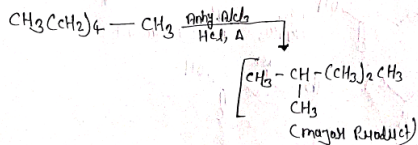 CH₃(CH₂)₄ — CH₃ Anhy. AlCl₃
HCl, Δ
[CH₃ - CH - (CH₃)₂ CH₃
CH₃
(major Product)